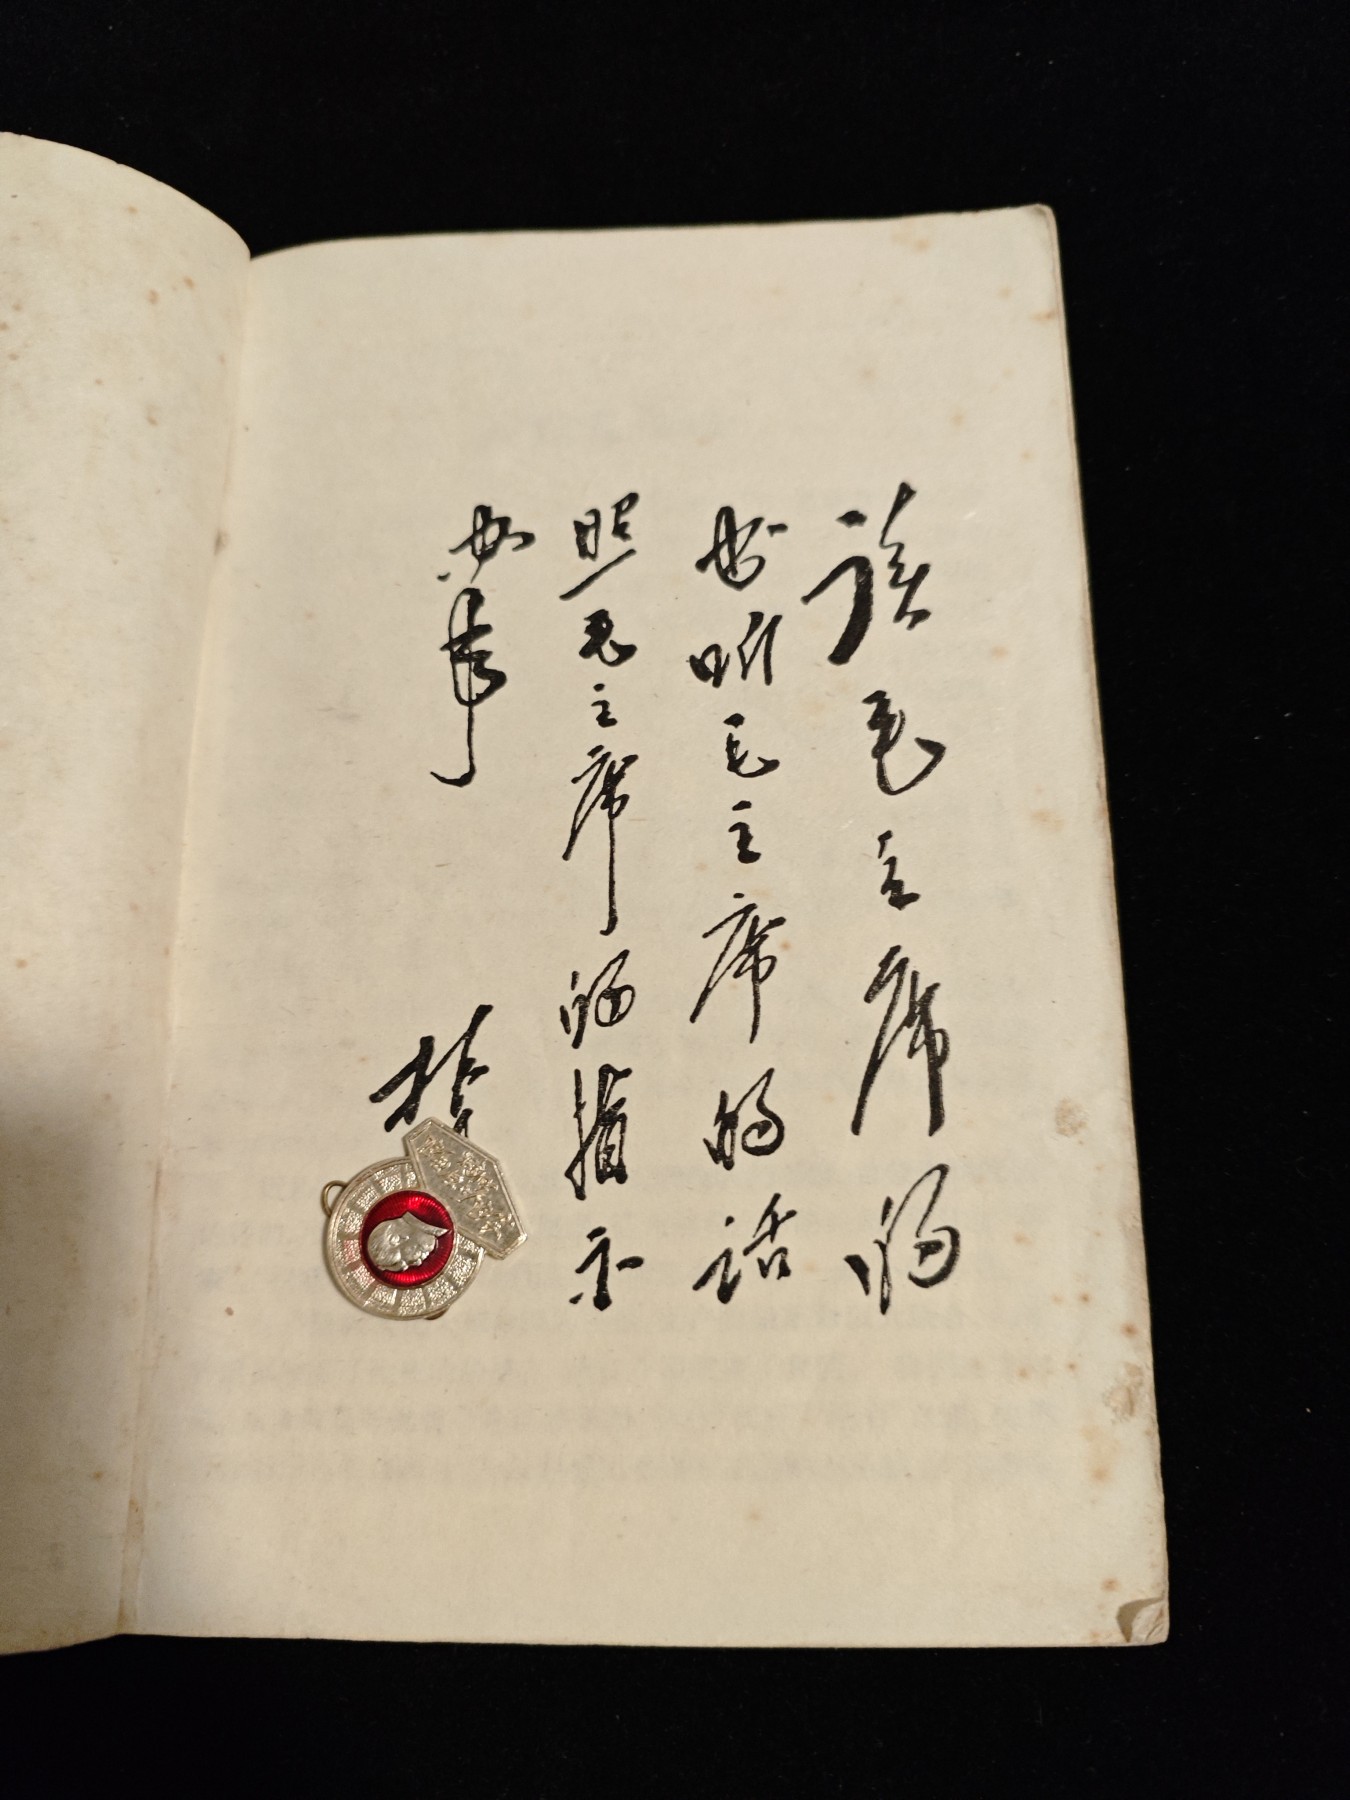 读毛主席的
书听毛主席的话
照毛主席的指示
办事
林